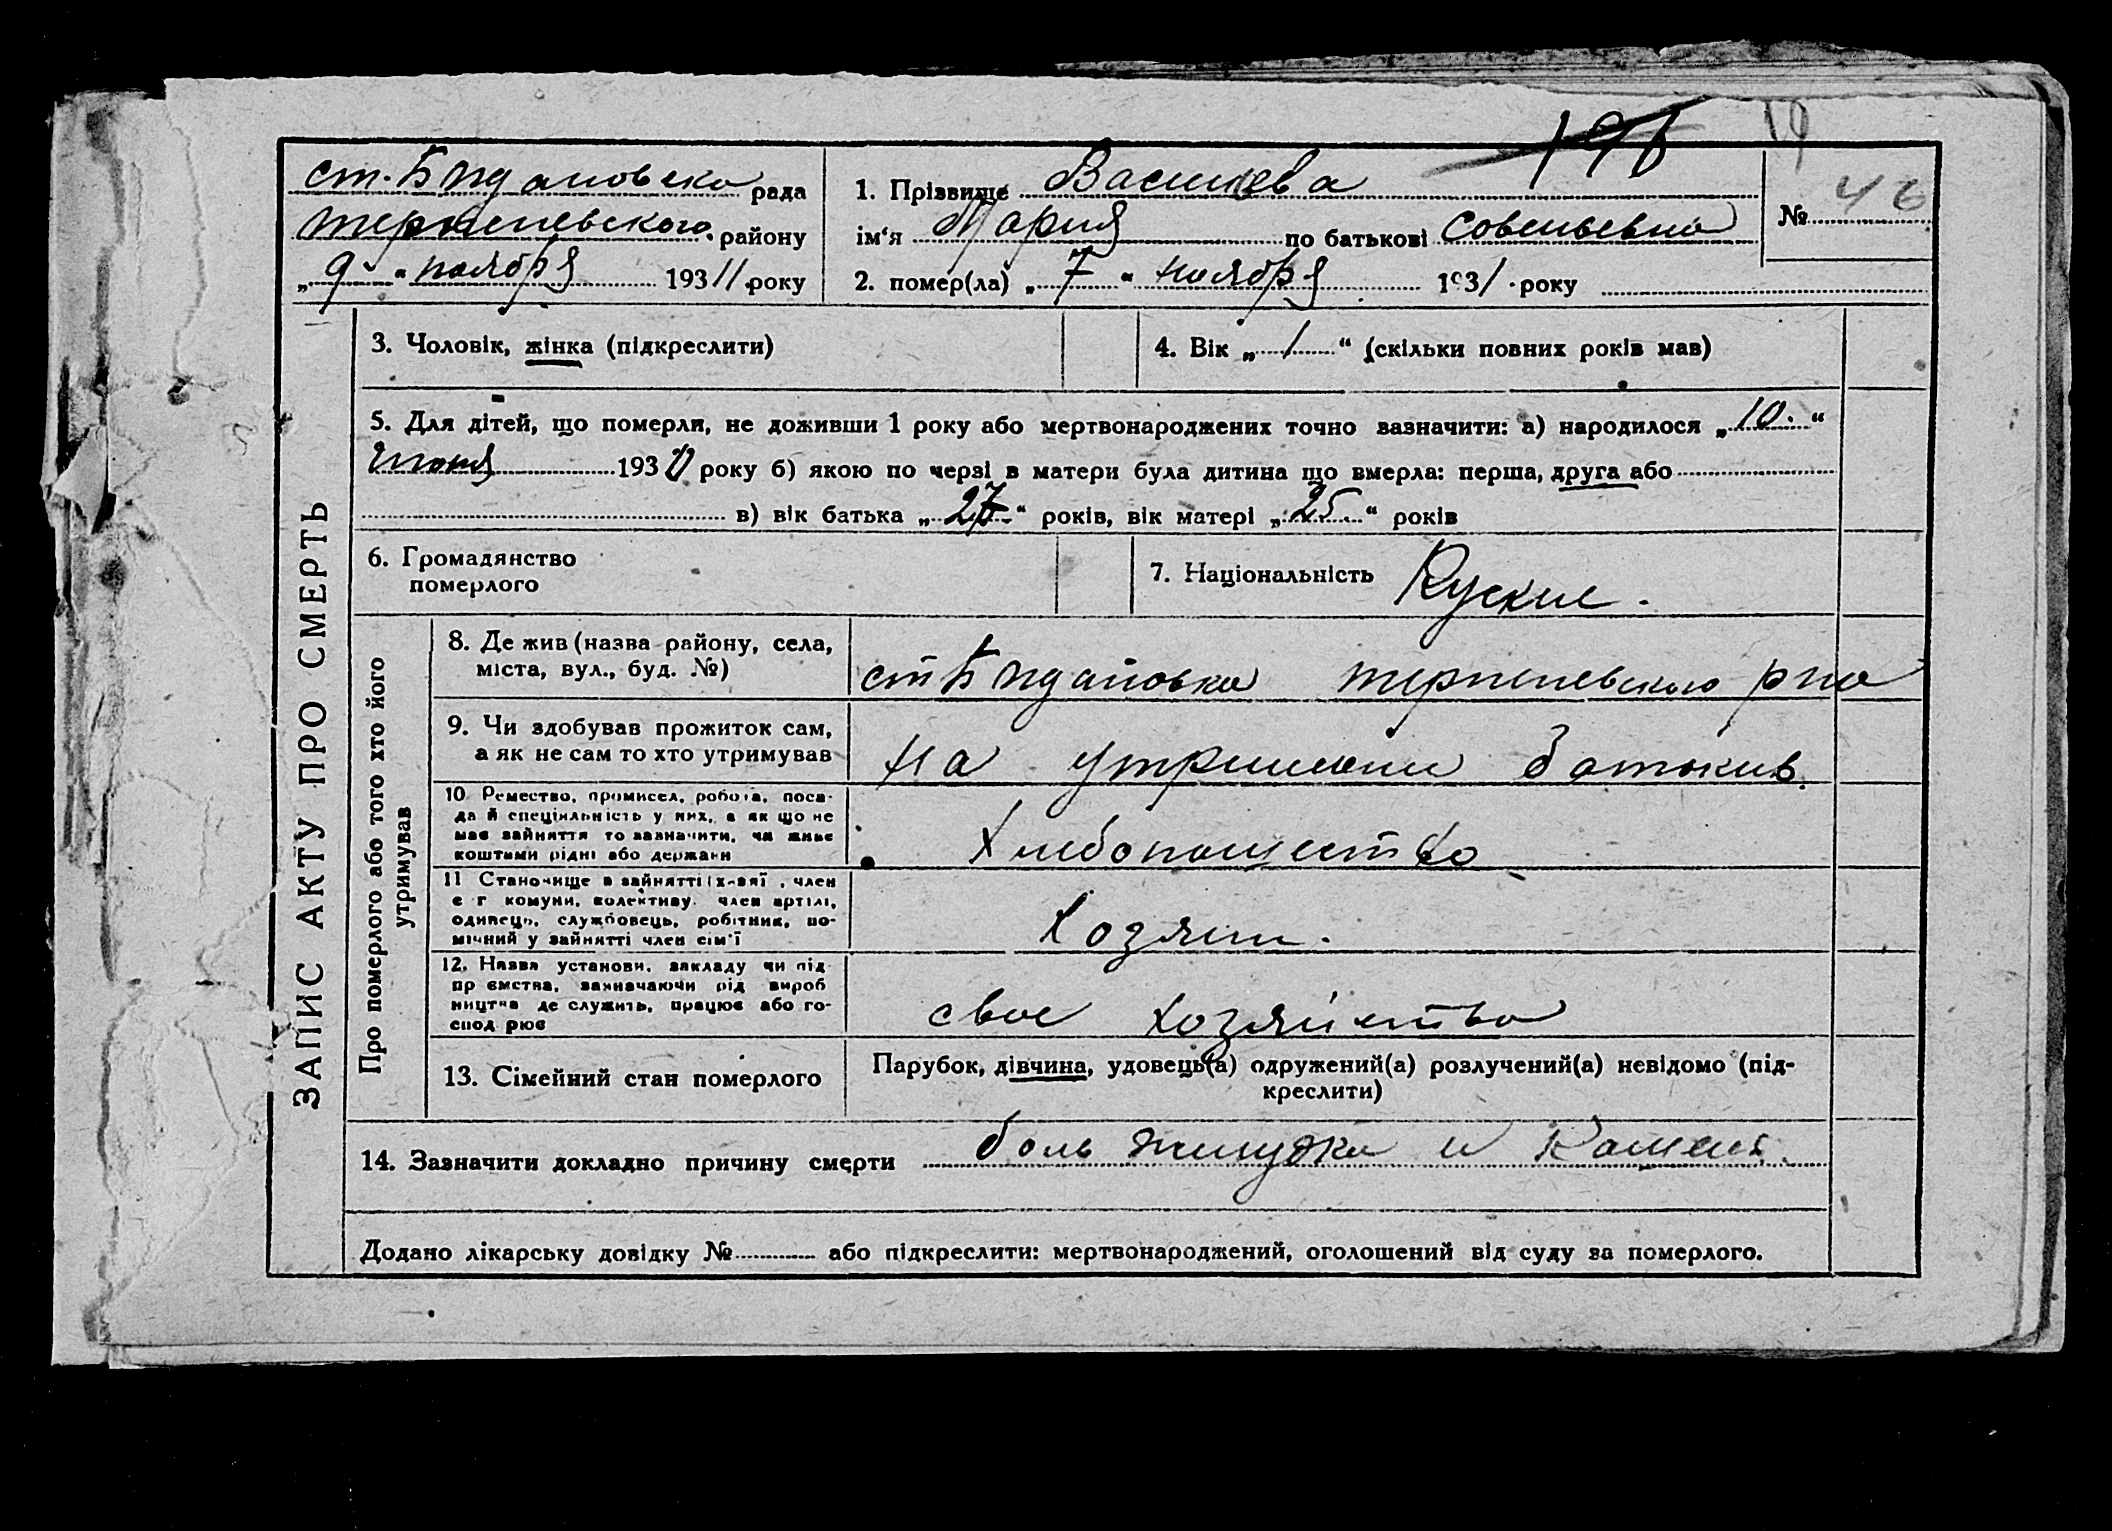 ст. Богдановска рада
терпеневского району
„ 9 " ноября 1931 року
196
19
1. Прізвище Васильева
ім'я Мария по батькові Совельевна
№ 46
2. помер(ла) „ 7 " ноября 1931 року
ЗАПИС АКТУ ПРО СМЕРТЬ
3. Чоловік, жінка (підкреслити)
4. Вік „ 1 " (скільки повних років мав)
5. Для дітей, що померли, не доживши 1 року або мертвонароджених точно зазначити: а) народилося „ 10. "
Июня 1930 року б) якою по черзі в матери була дитина що вмерла: перша, друга або
в) вік батька „ 27 " років, вік матері „ 25 " років
6. Громадянство
померлого
7. Національність Руские.
Про померлого або того хто його
утримував
8. Де жив (назва району, села,
міста, вул., буд. №)
ст Богдановка терпеневского рна
9. Чи здобував прожиток сам,
а як не сам то хто утримував
на утримани батькив.
10 Ремество, промисел, робота, поса-
да й спеціяльність у них, а як що не
має зайняття то зазначити, чи живе
коштами рідні або держави
Хлебопашество
11 Становище в зайнятті (х-вяї, член
с г комуни, колективу. член артілі,
одинець, службовець, робітник, по-
мічний у зайнятті член сім'ї
Хозяин.
12. Назва установи, закладу чи під
пр ємства, зазначаючи рід вироб
ництва де служить, працює або го-
спод рює
свое хозяйство
13. Сімейний стан померлого
Парубок, дівчина, удовець(а) одружений(а) розлучений(а) невідомо (під-
креслити)
14. Зазначити докладно причину смерти боль желудка и Кашель.
Додано лікарську довідку № або підкреслити: мертвонароджений, оголошений від суду за померлого.